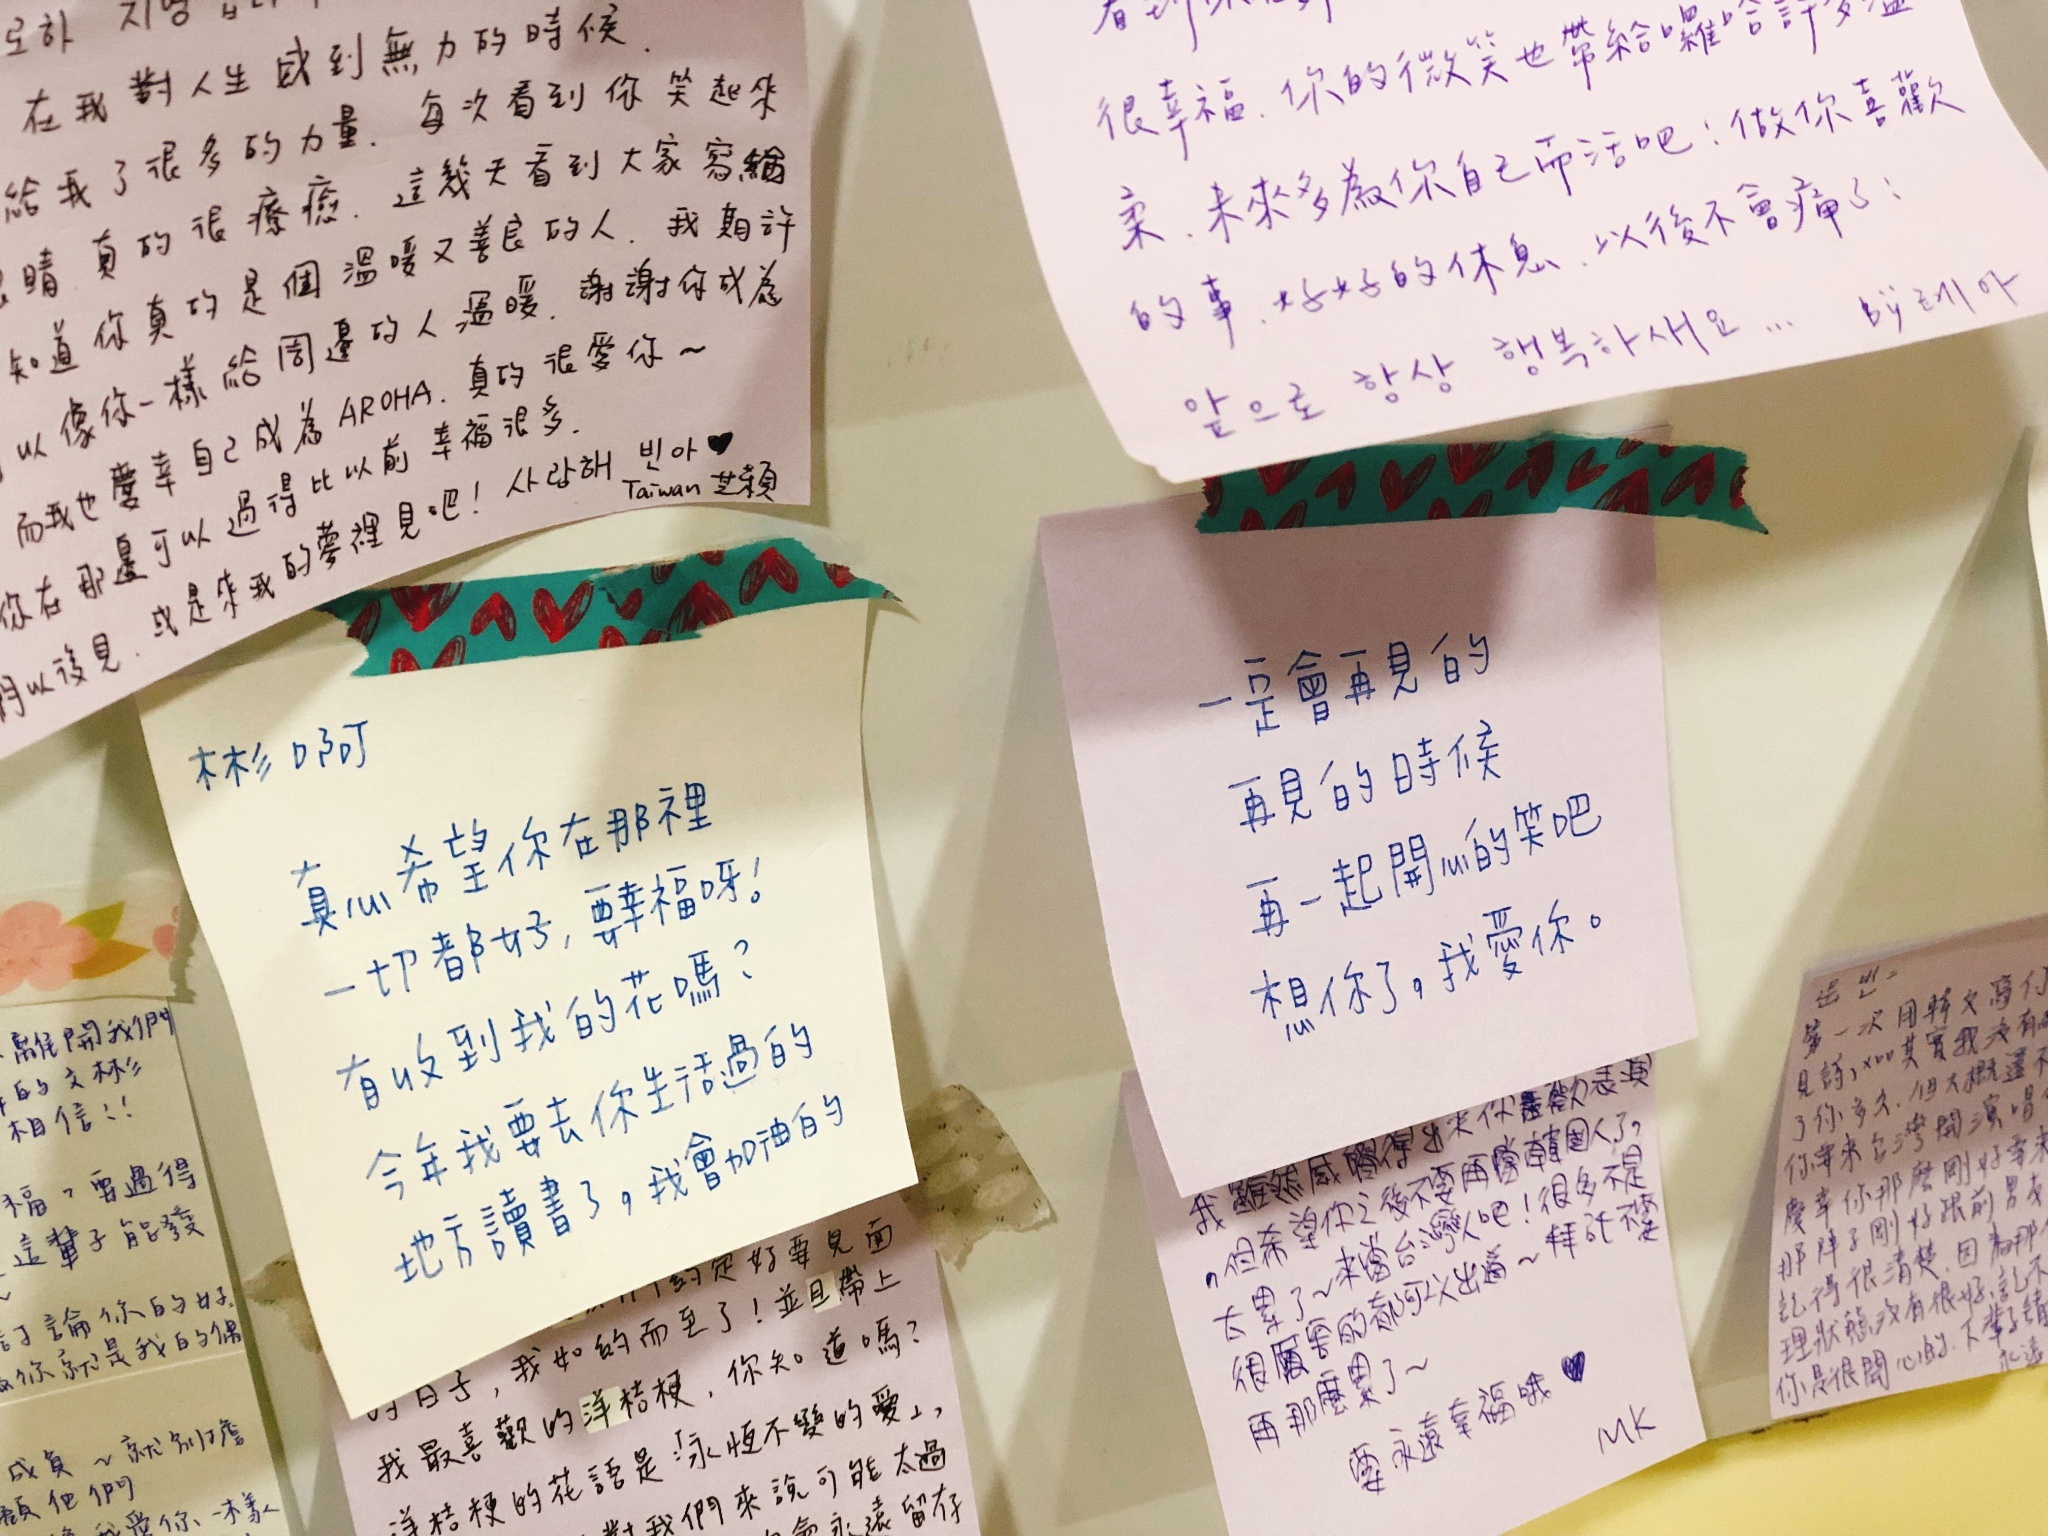 在我對人生感到無力的時候.
給我了很多的力量. 每次看到你笑起來
真的很療癒. 這幾天看到大家寫給
知道你真的是個溫暖又善良的人. 我期許
以像你一樣給周邊的人溫暖. 謝謝你成為
而我也慶幸自己成為AROHA. 真的很愛你~
你在那邊可以過得比以前幸福很多.
以後見. 或是來我的夢裡見吧! 사랑해 빈아♥
Taiwan 芝穎
很幸福. 你的微笑也帶給囉哈許多溫
柔. 未來多為你自己而活吧! 做你喜歡
的事. 好好的休息. 以後不會痛了!
앞으로 항상 행복하세요... By 레아
彬彬啊
真心希望你在那裡
一切都好, 要幸福呀!
有收到我的花嗎?
今年我要去你生活過的
地方讀書了, 我會加油的
一定會再見的
再見的時候
再一起開心的笑吧
想你了, 我愛你。
離開我們
的文彬彬
相信!!
福, 要過得
這輩子能發
討論你的好
你就是我的偶
成員~就別擔
顧他們
定好要見面
的日子, 我如約而至了! 並且帶上
我最喜歡的洋桔梗. 你知道嗎?
洋桔梗的花語是「永恆不變的愛」,
對我們來說可能太過
會永遠留存
我雖然感覺得出來你喜歡表演
, 但希望你之後不要再當韓國人了,
太累了~來當台灣人吧! 很多不是
很厲害的都可以出道~拜託不要
再那麼累了~
要永遠幸福哦♥
MK
第一次用韓文寫你
見諒, xxx其實我沒有
了你多久. 但大概還不
你幸來台灣開演唱
慶幸你那麼剛好幸來
那陣子剛好跟前男友
記得很清楚. 因為那
理狀態沒有很好, 記不
你是很開心的. 下輩子請
永遠